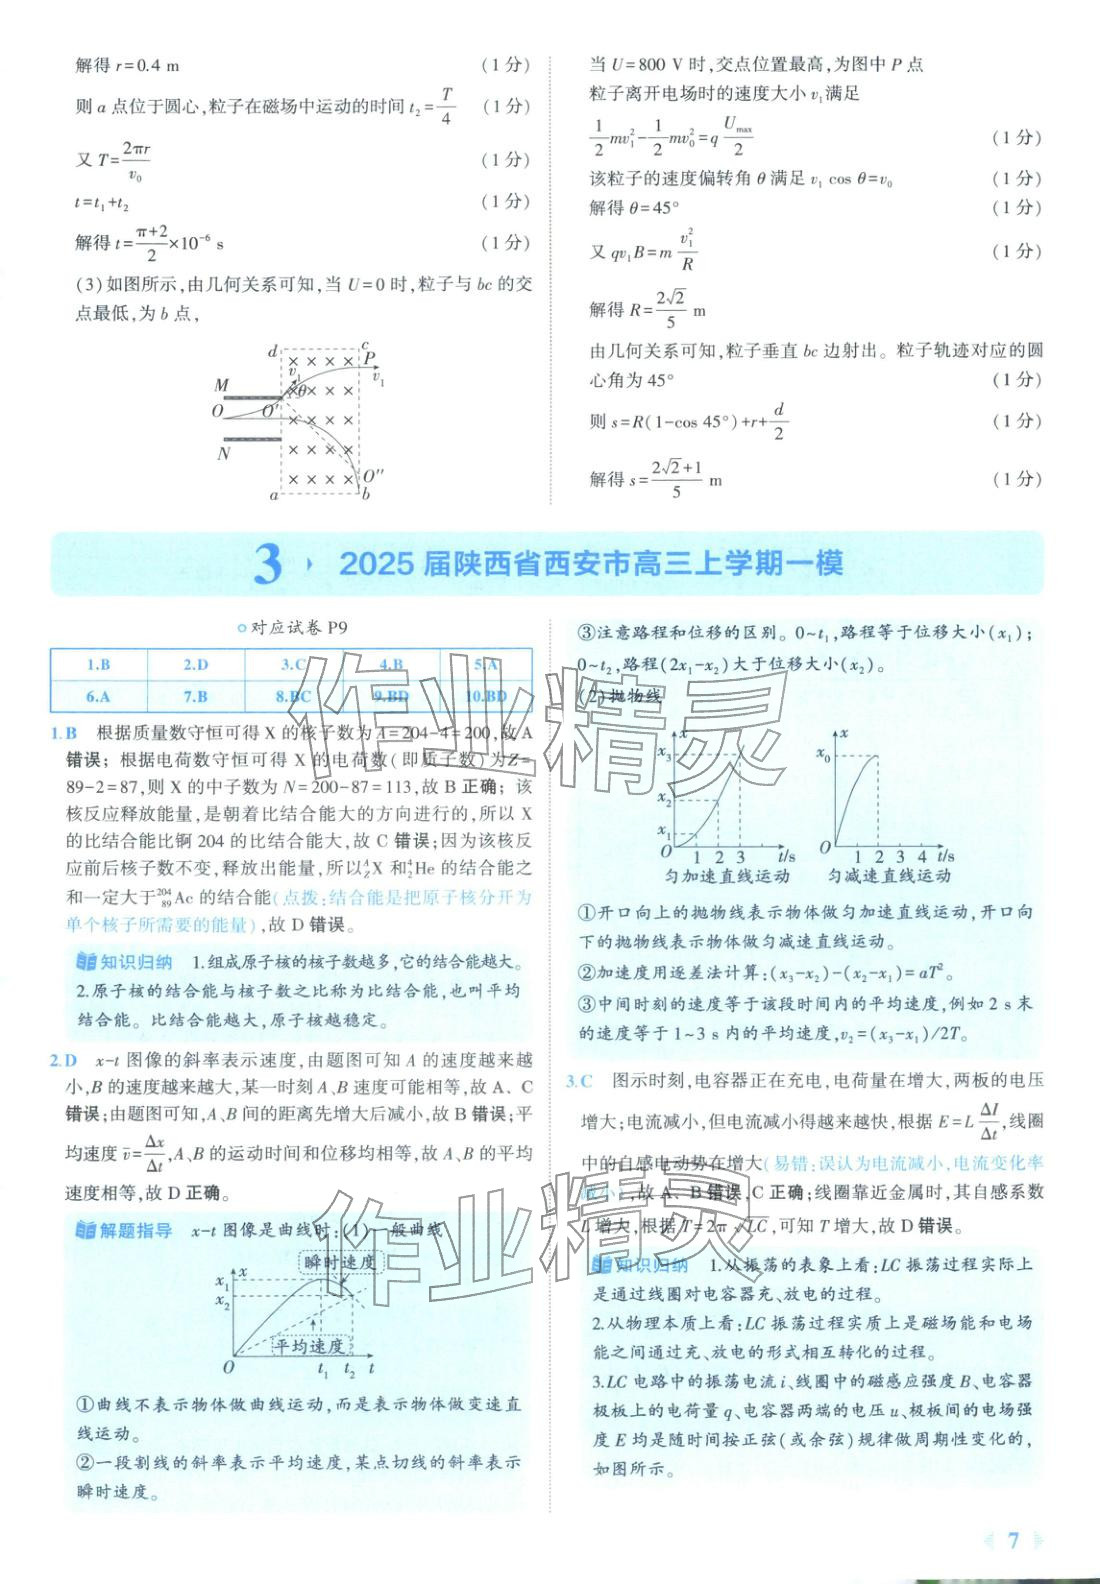 解得 r=0.4 m (1 分)
则 a 点位于圆心,粒子在磁场中运动的时间 t₂=T/4 (1 分)
又 T=2πr/v₀ (1 分)
t=t₁+t₂ (1 分)
解得 t=(π+2)/2×10⁻⁶ s (1 分)
(3)如图所示,由几何关系可知,当 U=0 时,粒子与 bc 的交
点最低,为 b 点,
d c P v₁ v₁ θ M O O′ N O″ a b
当 U=800 V 时,交点位置最高,为图中 P 点
粒子离开电场时的速度大小 v₁满足
1/2 mv₁²-1/2 mv₀²=q Umax/2 (1 分)
该粒子的速度偏转角 θ 满足 v₁ cos θ=v₀ (1 分)
解得 θ=45° (1 分)
又 qv₁B=m v₁²/R (1 分)
解得 R=2√2/5 m
由几何关系可知,粒子垂直 bc 边射出。粒子轨迹对应的圆
心角为 45° (1 分)
则 s=R(1-cos 45°)+r+d/2 (1 分)
解得 s=(2√2+1)/5 m (1 分)
3 2025 届陕西省西安市高三上学期一模
对应试卷 P9
1.B 2.D 3.C 4.B 5.A
6.A 7.B 8.BC 9.BD 10.BD
1.B 根据质量数守恒可得 X 的核子数为 A=204-4=200,故 A
错误;根据电荷数守恒可得 X 的电荷数(即质子数)为Z=
89-2=87,则 X 的中子数为 N=200-87=113,故 B 正确;该
核反应释放能量,是朝着比结合能大的方向进行的,所以 X
的比结合能比锕 204 的比结合能大,故 C 错误;因为该核反
应前后核子数不变,释放出能量,所以ᴬ_ZX 和⁴₂He 的结合能之
和一定大于²⁰⁴₈₉Ac 的结合能(点拨:结合能是把原子核分开为
单个核子所需要的能量),故 D 错误。
知识归纳 1.组成原子核的核子数越多,它的结合能越大。
2.原子核的结合能与核子数之比称为比结合能,也叫平均
结合能。比结合能越大,原子核越稳定。
2.D x-t 图像的斜率表示速度,由题图可知 A 的速度越来越
小,B 的速度越来越大,某一时刻 A、B 速度可能相等,故 A、C
错误;由题图可知,A、B 间的距离先增大后减小,故 B 错误;平
均速度 v̄=Δx/Δt,A、B 的运动时间和位移均相等,故 A、B 的平均
速度相等,故 D 正确。
解题指导 x-t 图像是曲线时:(1)一般曲线
x 瞬时速度 x₁ x₂ 平均速度 O t₁ t₂ t
①曲线不表示物体做曲线运动,而是表示物体做变速直
线运动。
②一段割线的斜率表示平均速度,某点切线的斜率表示
瞬时速度。
③注意路程和位移的区别。0~t₁,路程等于位移大小(x₁);
0~t₂,路程(2x₁-x₂)大于位移大小(x₂)。
(2)抛物线
x x₃ x₂ x₁ O 1 2 3 t/s
匀加速直线运动
x x₀ O 1 2 3 4 t/s
匀减速直线运动
①开口向上的抛物线表示物体做匀加速直线运动,开口向
下的抛物线表示物体做匀减速直线运动。
②加速度用逐差法计算:(x₃-x₂)-(x₂-x₁)=aT²。
③中间时刻的速度等于该段时间内的平均速度,例如 2 s 末
的速度等于 1~3 s 内的平均速度,v₂=(x₃-x₁)/2T。
3.C 图示时刻,电容器正在充电,电荷量在增大,两板的电压
增大;电流减小,但电流减小得越来越快,根据 E=L ΔI/Δt,线圈
中的自感电动势在增大(易错:误认为电流减小,电流变化率
减小),故 A、B 错误,C 正确;线圈靠近金属时,其自感系数
L 增大,根据 T=2π√LC,可知 T 增大,故 D 错误。
知识归纳 1.从振荡的表象上看:LC 振荡过程实际上
是通过线圈对电容器充、放电的过程。
2.从物理本质上看:LC 振荡过程实质上是磁场能和电场
能之间通过充、放电的形式相互转化的过程。
3.LC 电路中的振荡电流 i、线圈中的磁感应强度 B、电容器
极板上的电荷量 q、电容器两端的电压 u、极板间的电场强
度 E 均是随时间按正弦(或余弦)规律做周期性变化的,
如图所示。
作业精灵
作业精灵
7